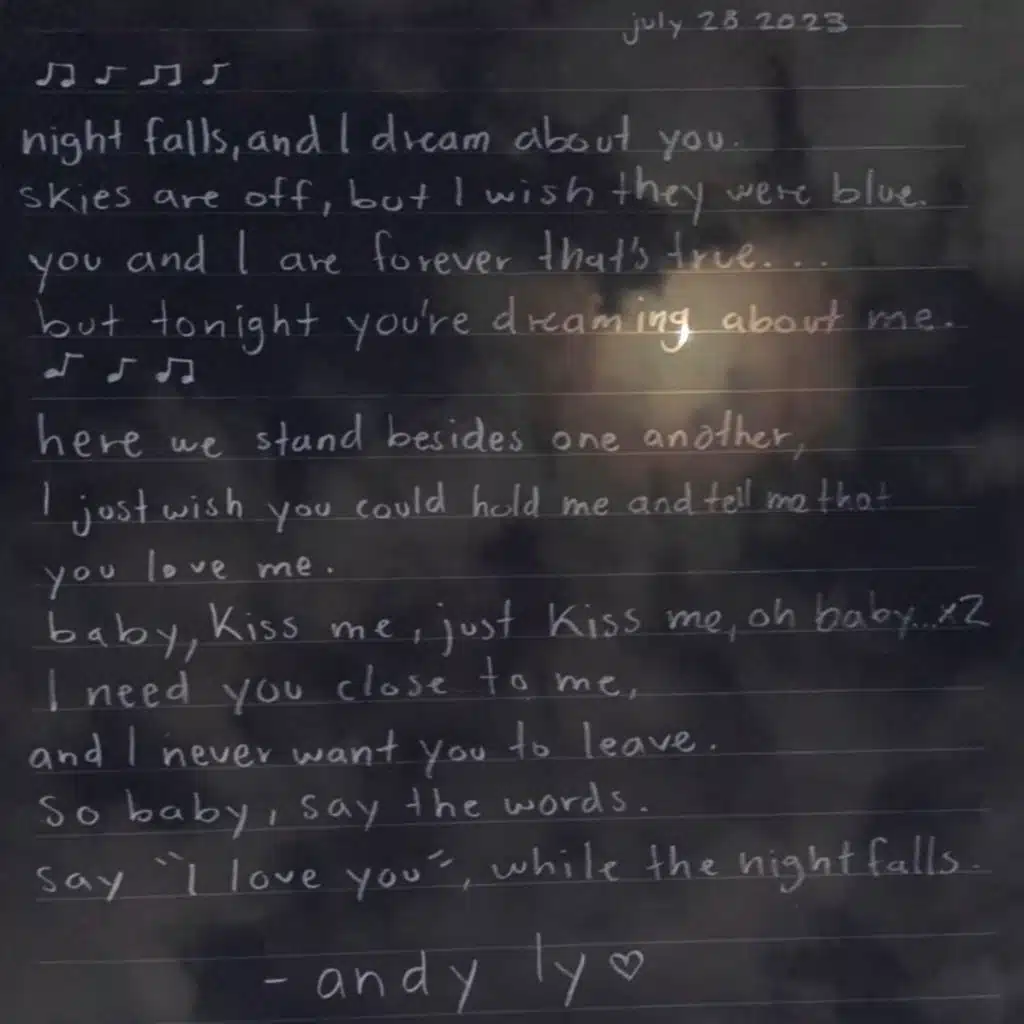 july 28 2023
night falls, and I dream about you.
skies are off, but I wish they were blue.
you and I are forever that's true...
but tonight you're dreaming about me.
here we stand besides one another,
I just wish you could hold me and tell me that
you love me.
baby, Kiss me, just Kiss me, oh baby...x2
I need you close to me,
and I never want you to leave.
So baby, say the words.
say "I love you", while the night falls.
- andy ly ♡